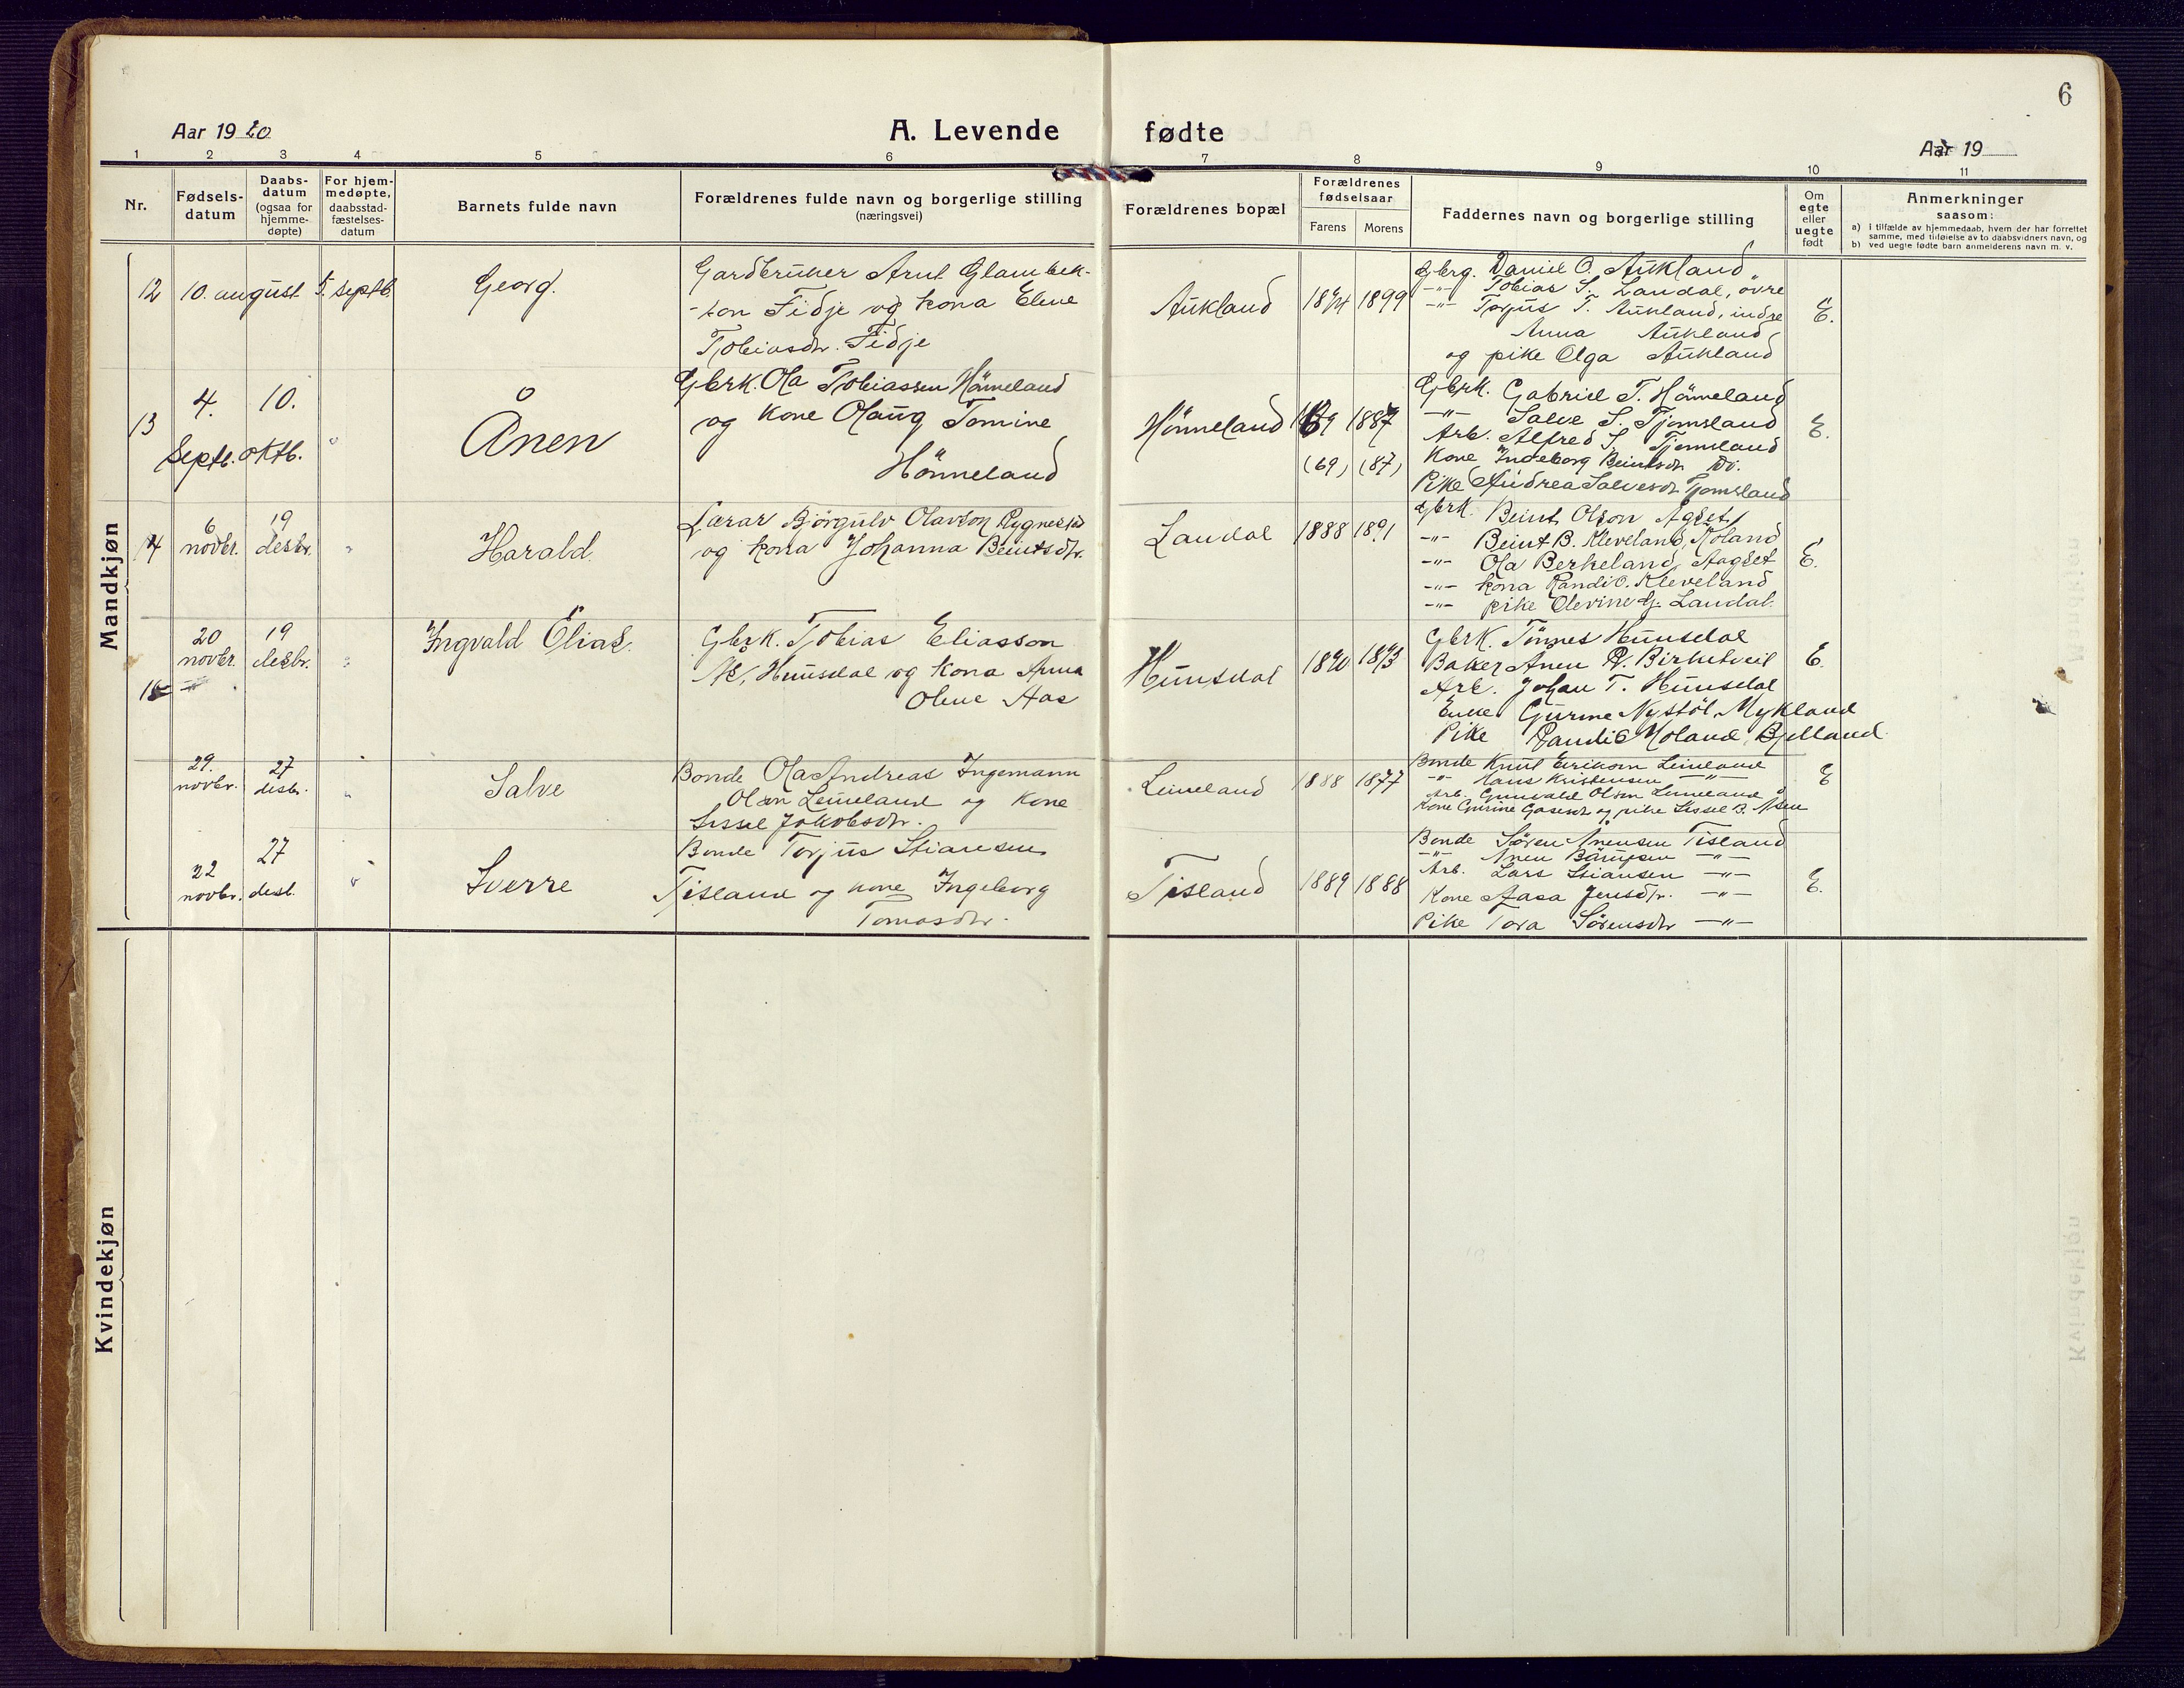 6
Aar 1920
A. Levende fødte
Aar 19
1 2 3 4 5 6 7 8 9 10 11
Nr.
Fødsels-
datum
Daabs-
datum
(ogsaa for
hjemme-
døpte)
For hjem-
medøpte,
daabsstad-
fæstelses-
datum
Barnets fulde navn
Forældrenes fulde navn og borgerlige stilling
(næringsvei)
Forældrenes bopæl
Forældrenes
fødselsaar
Farens Morens
Faddernes navn og borgerlige stilling
Om
egte
eller
uegte
født
Anmerkninger
saasom:
a) i tilfælde av hjemmedaab, hvem der har forrettet
samme, med tilføielse av to daabsvidners navn, og
b) ved uegte fødte barn anmelderens navn m. v.
Mandkjøn
12 10. august 5. septb. Georg.
Gardbruker Arnt
-son Fidje og kona
Tobiasdr. Fidje
Aukland 1899
Gbrg. Daniel O. Aukland
-"- Tobias S. Landal, övre
-"- Torjus T. Aukland, indre
Anna Aukland
og pike Olga Aukland
E.
13
4.
Septb.
10.
oktb.
"
Ånen
Gbrk. Ola Tobiassen Hönneland
og kone Olaug Tomine
Hönneland
Hönneland 1887
(69) (87)
Gbrk. Gabriel T. Hönneland
-"- Salve S. Tjomsland
Arb. Alfred S. Tjomsland
Kone Ingeborg Beintsdr do.
Pike Andrea Salvesdr Tjomsland
E.
14
6
novbr.
19
desbr.
"
Harald.
Lærar Björgulv Olavson Rygnestad
og kona Johanna Beintsdtr.
Landal 1888 1891
Gbrk. Beint Olson Agset
-"- Beint B. Kleveland, Röland
-"- Ola Berkeland, Aagset
-"- kona Randi O. Kleveland
-"- pike Olevine G. Landal.
E.
15
20
novbr.
19
desbr.
"
Ingvald Elias.
Gbrk. Tobias Eliasson
Hunsdal og kona Anna
Olene Aas
Hunsdal
Gbrk. Tönnes Hunsdal
Baker Ånen Birketveit
Arb. Johan T. Hunsdal
Enke Gurine Nystöl, Mykland
Pike Randi Bjelland
E.
29.
novbr.
27
desbr.
"
Salve
Bonde Ola Andreas Ingemann
Olsen Leineland og kone
Sissel Jakobsdr.
Leineland 1888 1877
Bonde Knut Erikson Leineland
-"- Hans Kristensen -"-
Arb. Gunvald Olsen Leineland
Kone Gurine og pike Sissel B.
E
22
novbr.
27
desb.
"
Sverre
Bonde Torjus Stiansen
Tisland og kone Ingeborg
Tomasdtr.
Tisland 1889 1888
Bonde Søren Ånensen Tisland
-"- Ånen -"-
Arb. Lars Stiansen -"-
Kone Aasa Jensdtr. -"-
Pike Tora Sörensdtr -"-
E.
Kvindekjøn